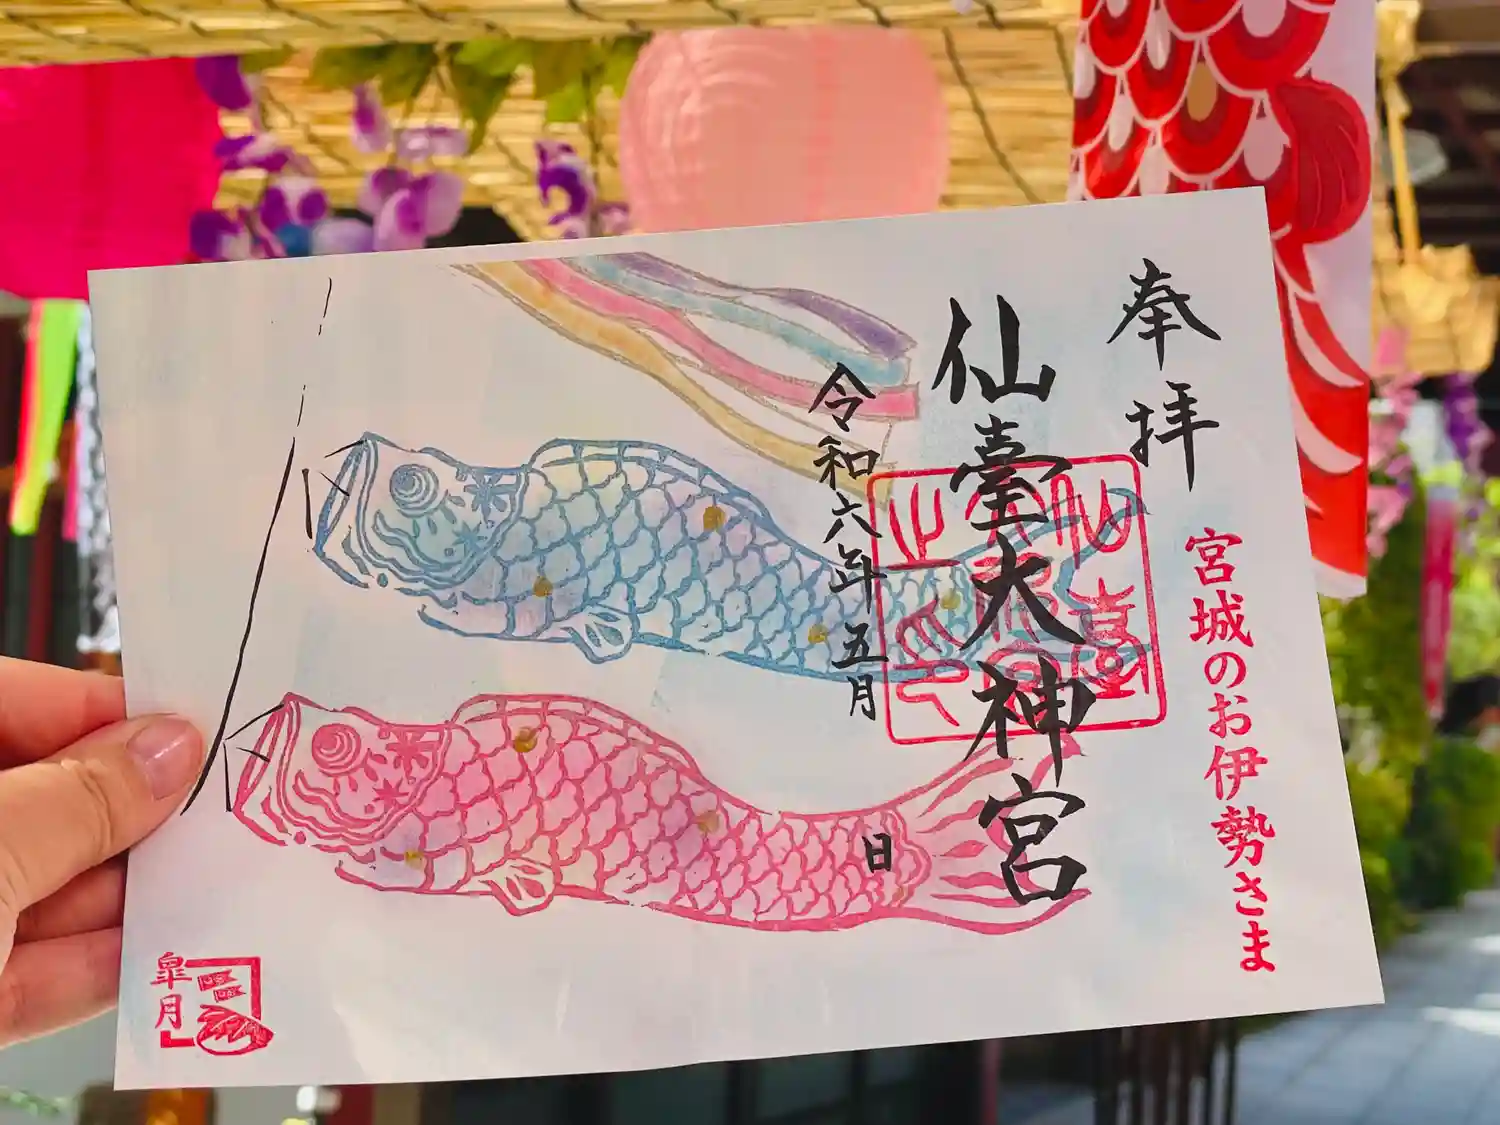 奉拝
宮城のお伊勢さま
仙臺大神宮
令和六年五月
日
皐月